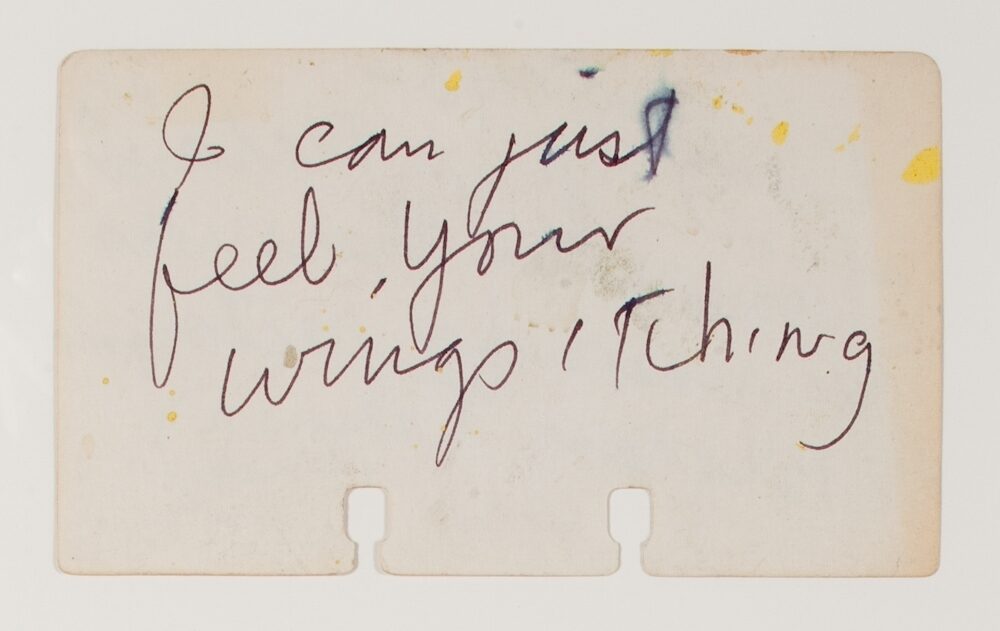 I can just
feel, your
wings itching